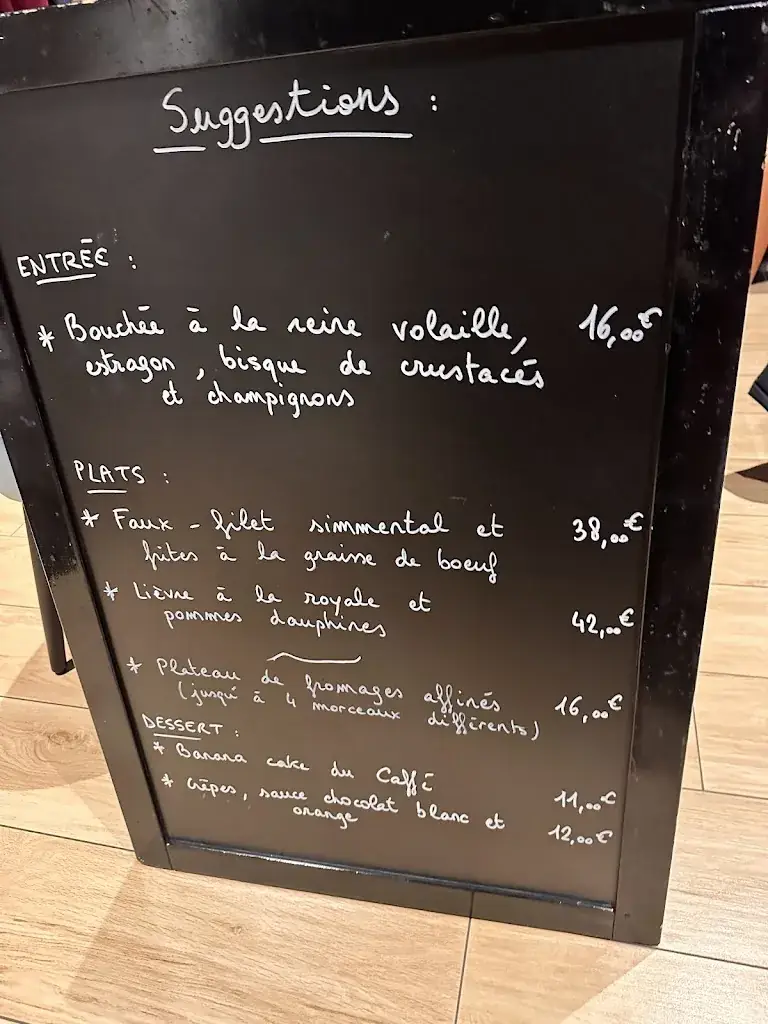 Suggestions :
ENTRÉE :
* Bouchée à la reine volaille, 16,00€
estragon, bisque de crustacés
et champignons
PLATS :
* Faux-filet simmental et 38,00€
frites à la graisse de boeuf
* Lièvre à la royale et
pommes dauphines 42,00€
* Plateau de fromages affinés
(jusqu'à 4 morceaux différents) 16,00€
DESSERT :
* Banana cake du Caffé 11,00€
* Crêpes, sauce chocolat blanc et 12,00€
orange